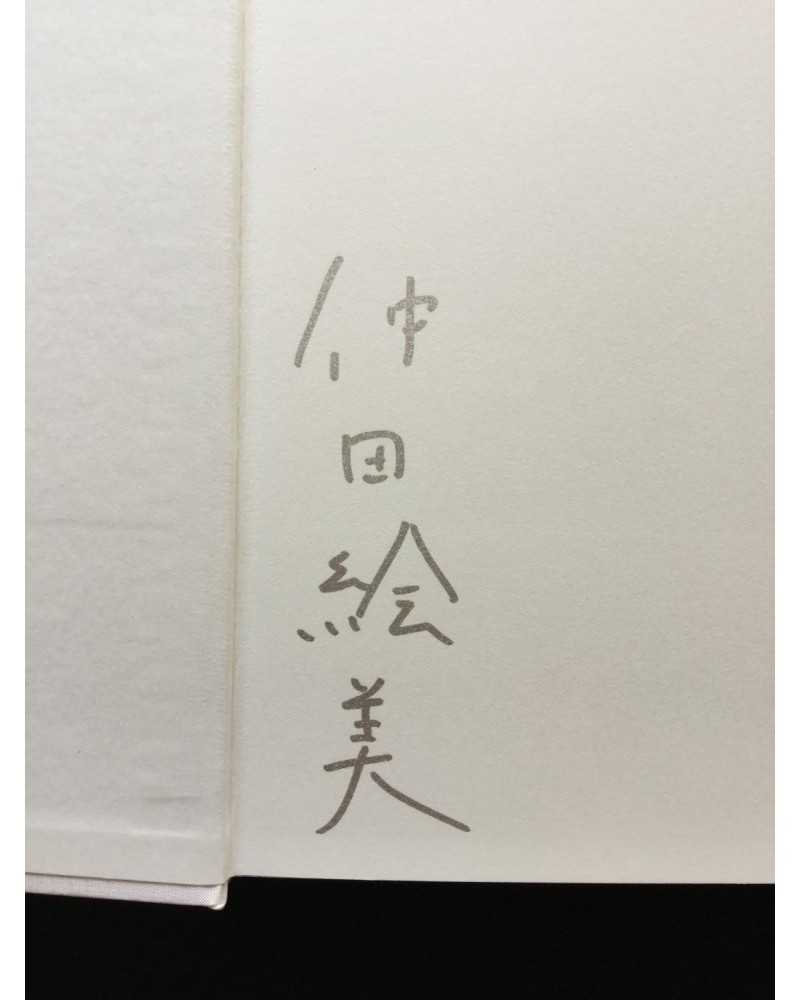 仲田絵美